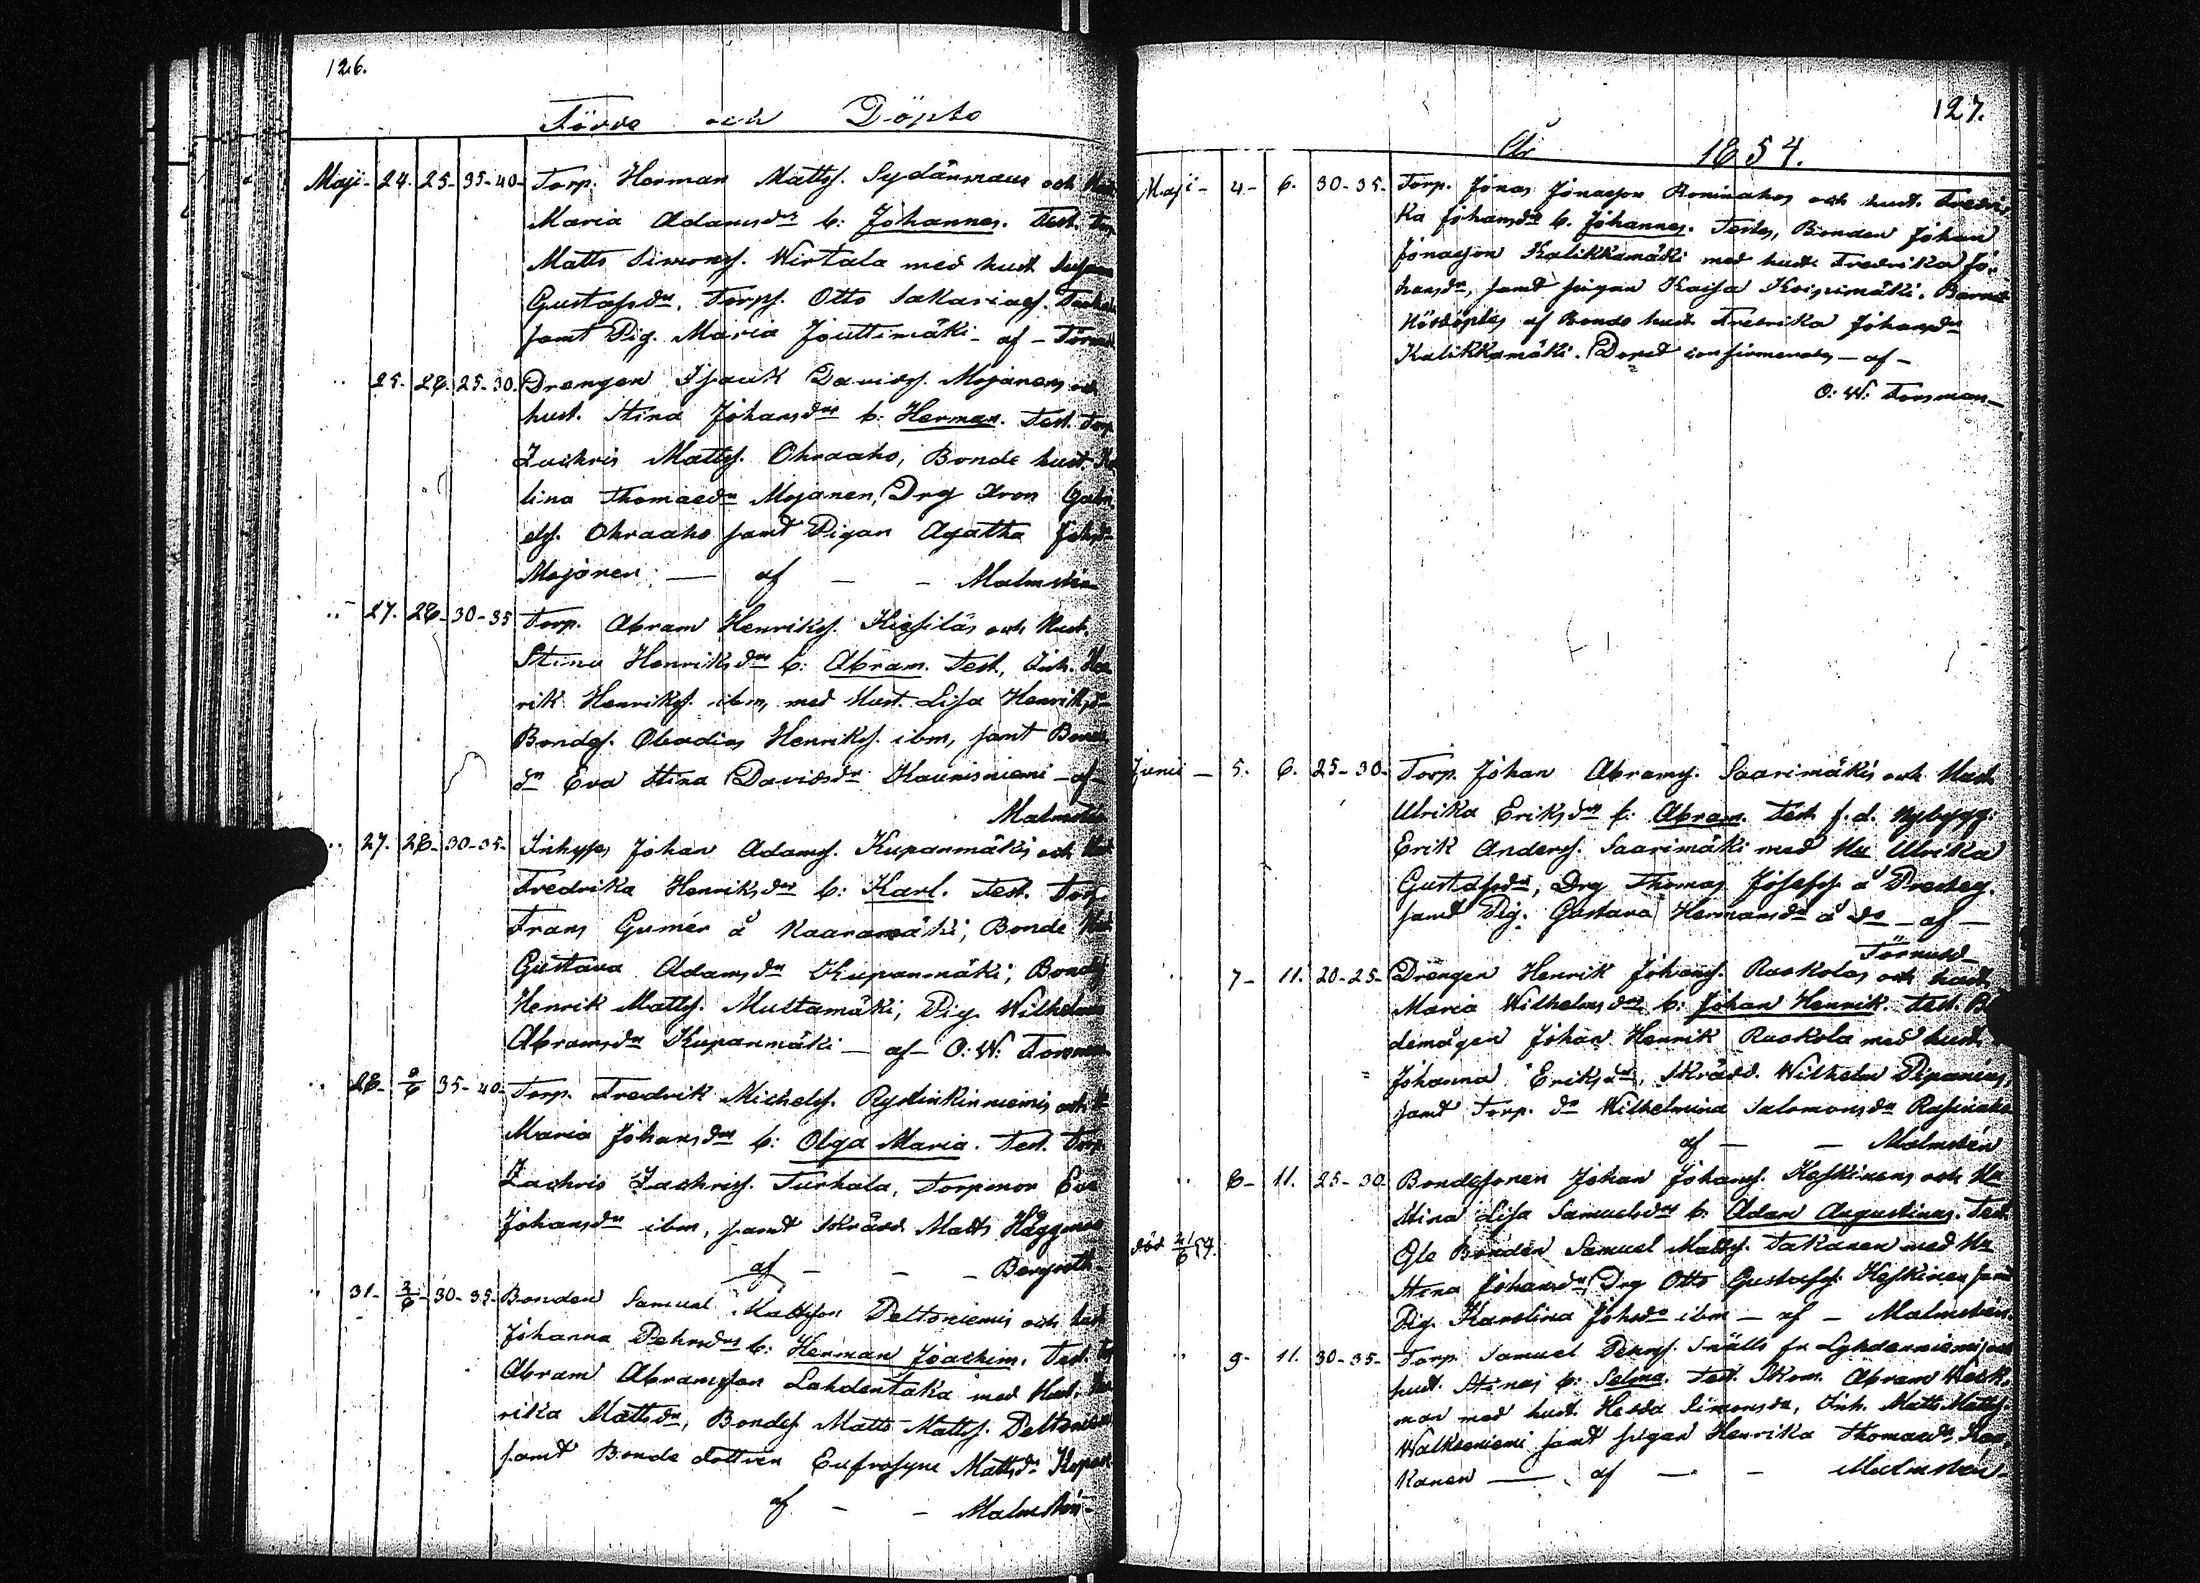 126.
Födde och Döpte
Maji - 24. 25 - 35-40 - Torp. Herman Matts. Sydänmaas och
Maria Adamsdrs b: Johannes. Test. Torp.
Matts Simons. Wirtala med hust.
Gustafsdr, Torps. Otto Sakarias.
samt Pig. Maria Jouttimäki - af - Törnud
" 25. 28. 25-30. Drengen Isaak Davids. Mojanens och
hust. Stina Johansdrs b: Herman. Test. Torp.
Zachris Matts. Ohraaho, Bonde hust. Ka
lina Thomaedr Mojanen, Drg Aron Gabri
els. Ohraaho samt Pigan Agatha Johsdr
Mojanen — af - - Malmstén
" 27. 28 - 30-35 Torp. Abram Henriks. Kiesiläs och Hust.
Stina Henriksdrs b: Abram. Test, Inh. Hen
rik Henriks. ibm, med Hust. Lisa Henriksdr
Bondes. Obadias Henriks. ibm, samt Bonde
dr Eva Stina Davidsdr Kaunisniemi - af -
Malmstén
" 27. 28 - 30-35 - Inhyses Johan Adams. Kupanmäkis och Hust
Fredrika Henriksdrs b: Karl. Test. Torp.
Frans Gumér å Kaaramäki, Bonde Hust
Gustava Adamsdr Kupanmäki, Bondes
Henrik Matts. Multamäki, Pig. Wilhelmina
Abramsdr Kupanmäki — af - O: W: Forsman
" 28 - 5/6 35-40 - Torp. Fredrik Michels. Rystinkinniemis och
Maria Johansdrs b: Olga Maria. Test. Torp
Zachris Zachriss. Turhala, Torpmor Eva
Johansdr ibm, samt Skrädd. Matts Häggman
af - - - Bergroth
" 31 - 3/6 - 30-35 - Bonden Samuel Mattsson Peltoniemis och hust
Johanna Pehrsdrs b: Herman Joachim. Test.
Abram Abramsson Lahdentaka med Hust.
rika Mattsdr, Bondes Matts Matts. Peltoniemi
samt Bonde dottren Eufrosyne Mattsdr
af - - Malmstén
127.
År 1854.
Maji - 4 - 6. 30-35 - Torp. Jonas Jonasson Roninahos och hust. Fredri
ka Johansdrs b. Johannes. Testes, Bonden Johan
Jonasson Kalikkamäki med hust. Fredrika Jo
hansdr, samt pigan Kaisa Koipimäki. Barnet
nöddöptes af Bonde hust. Fredrika Johansdr
Kalikkamäki. Dopet confirmerades - af -
O: W: Forsman -
Junii - 5. 6. 25-30 - Torp. Johan Abrams. Saarimäkis och Hust.
Ulrika Eriksdrs b: Abram. Test. f.d. Nybygg.
Erik Anders. Saarimäki med Hu Ulrika
Gustafsdr, Drg Thomas Josefs. å Presteg.
samt Pig. Gustava Hermansdr å do - af -
Törnudd -
" 7 - 11. 20-25 - Drängen Henrik Johans. Ruokolas och hust
Maria Wilhelmsdrs b: Johan Henrik. Test.
demågen Johan Henrik Ruokola med hust.
Johanna Eriksdr, Skrädd. Wilhelm Piponius,
samt Torp. dr Wilhelmina Salomonsdr
af - - Malmstén
" 8 - 11. 25-30 Bondesonen Johan Johans. Keskinens och Hu
Stina Lisa Samuelsdrs b: Adam Augustinus. Test.
död 21/6 54. Gle Bonden Samuel Matts. Takanen med Hu
Stina Johansdr, Drg Otto Gustafs. Keskinen samt
Pig. Karolina Johsdr ibm - af - Malmstén.
" 9 - 11. 30-35 - Torp. Samuel Pehrs. Snälls fr Lyhdenniemi och
hust. Stinas b: Selma. Test. Skom. Abram Werk
man med hust. Hedda Simonsdr, Inh. Matts Matts.
Walkeeniemi samt pigan Henrika Thomaedr
kanen — af - - Malmstén -